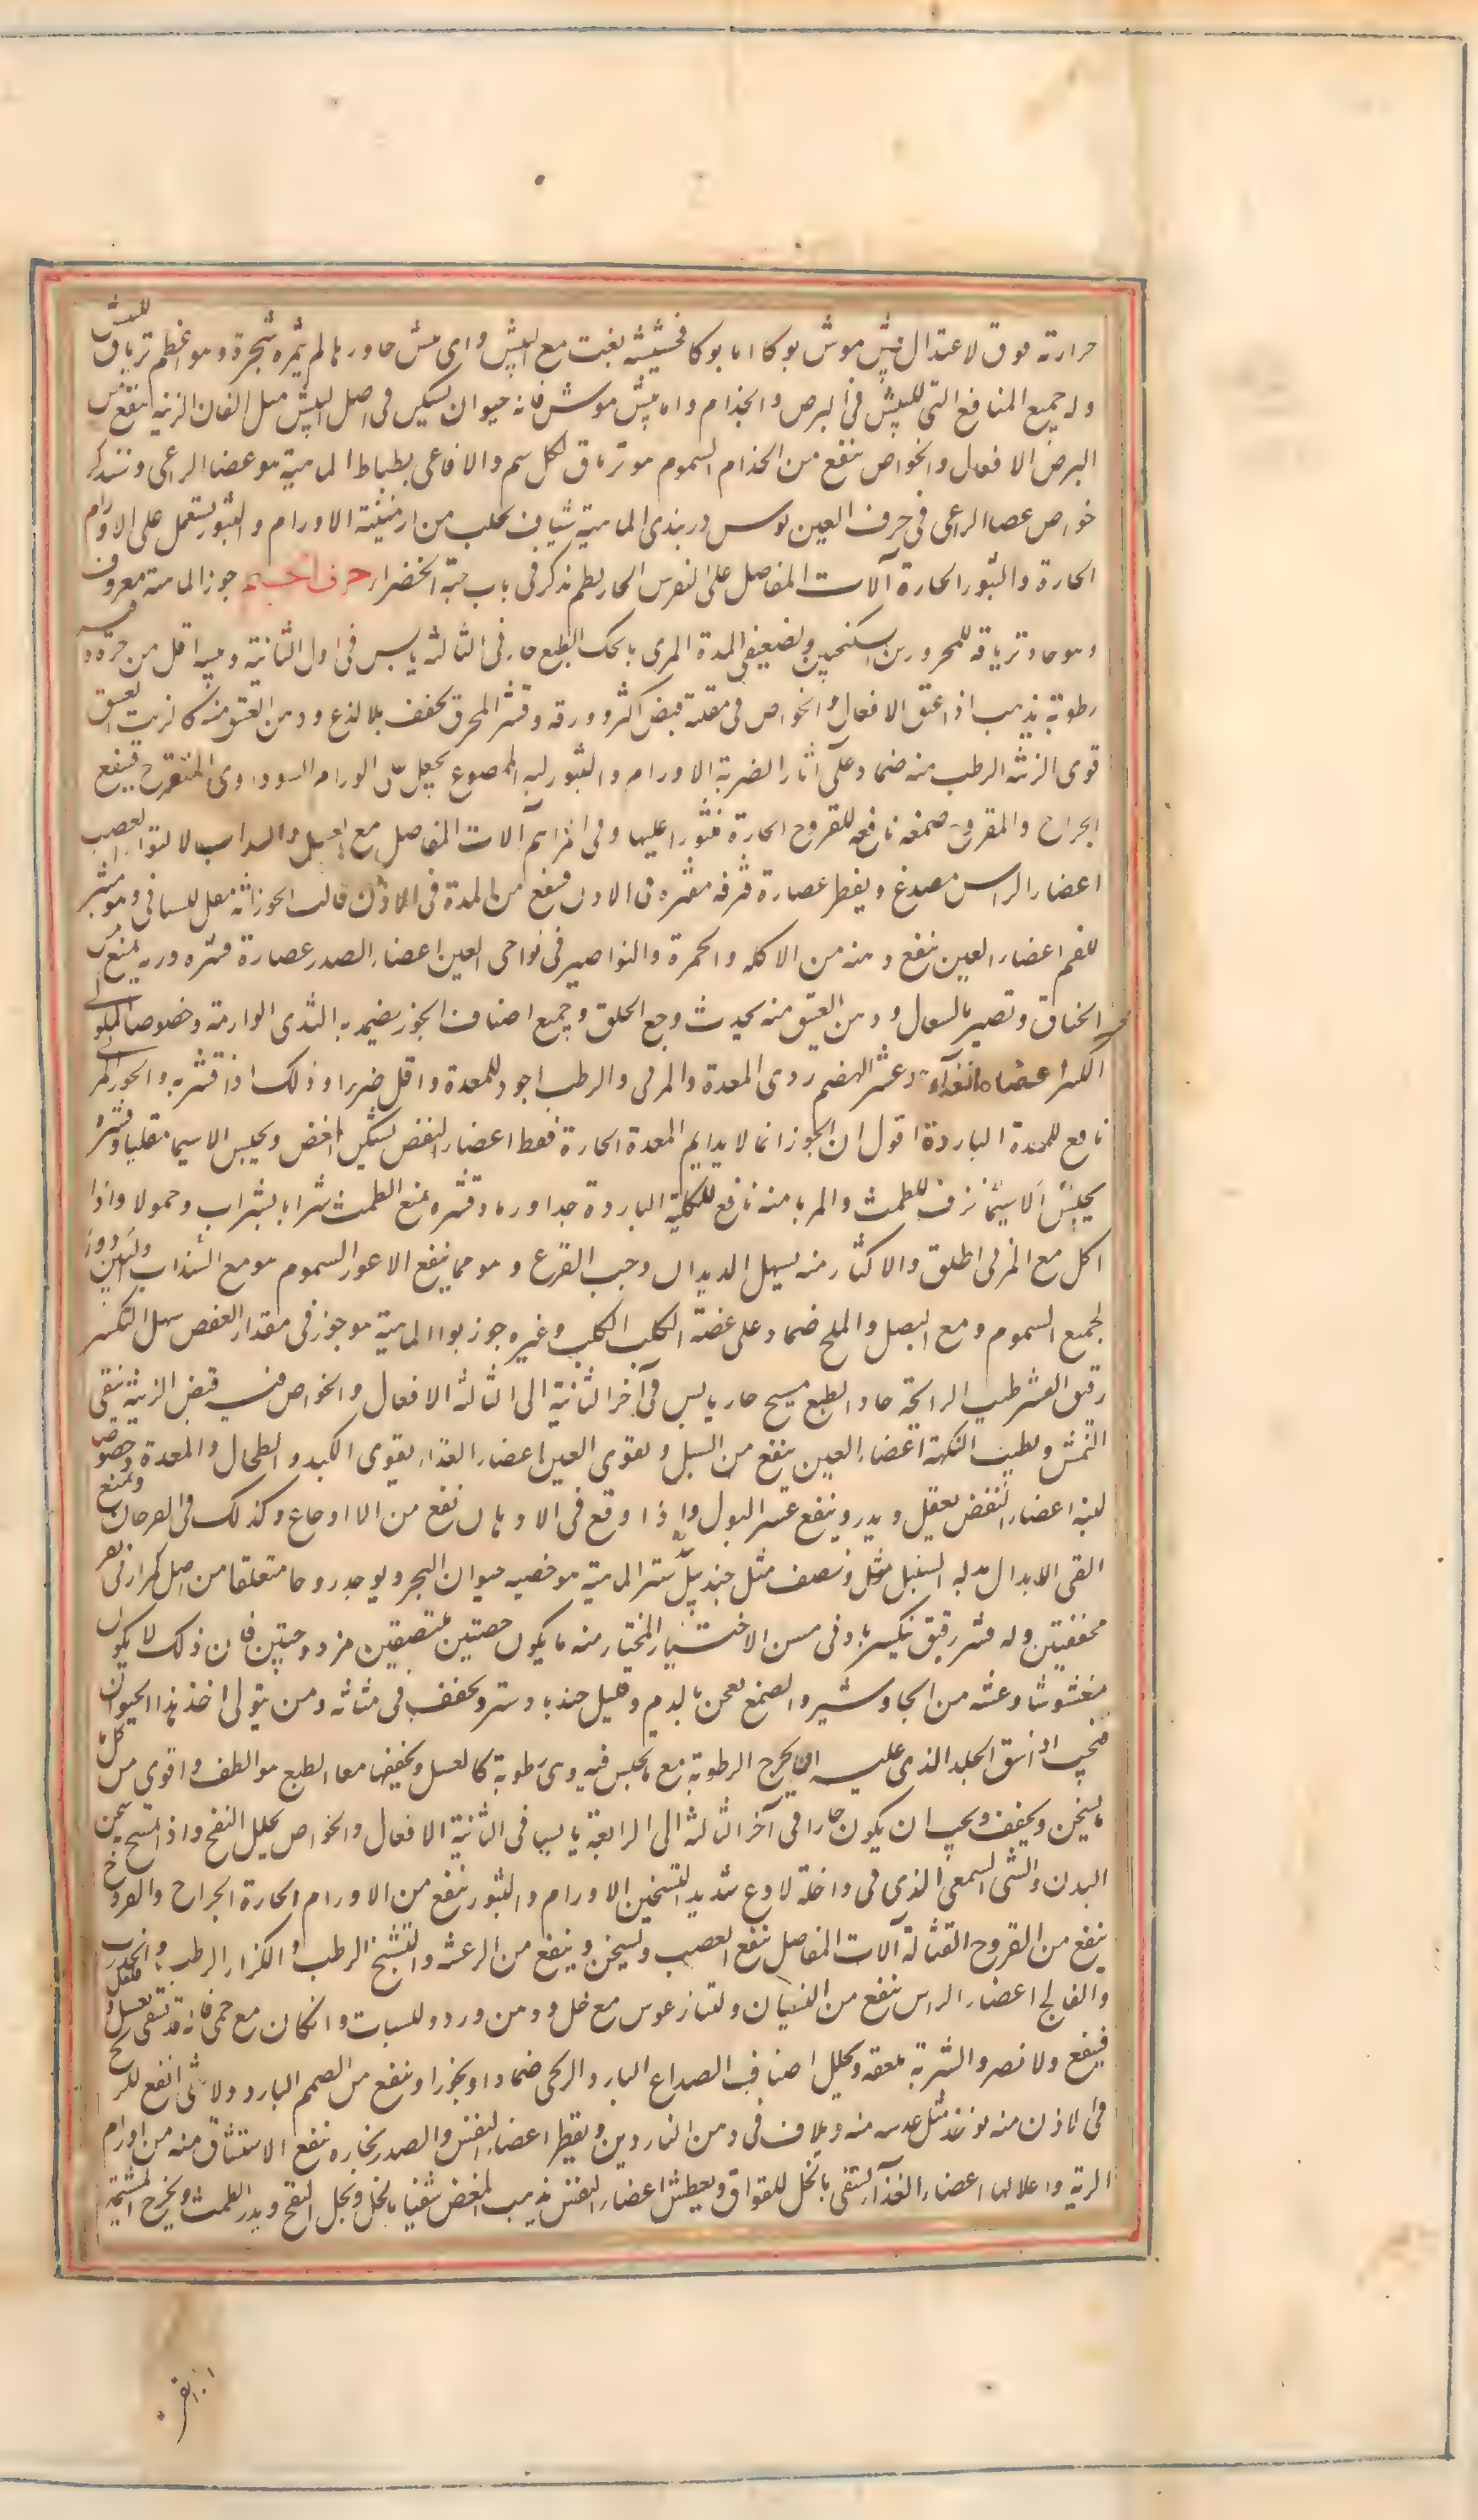 حرارته فوق لاعتدال بيش موش بوكا اما بوكا فحشيشه ينبت مع البيش واى بيش جاورها لم يثمره شجرة وهو اعظم ترياق للبيش
وله جميع المنافع التى للبيش فى البرص والجذام واما بيش موش فانه حيوان يسكن فى اصل البيش مثل الفار الزينه ينفع من
البرص الافعال والخواص ينفع من الجذام السموم هو ترياق لكل سم والافاعى بطباط الماهية هو عصا الراعى وسنذكر
خواص عصا الراعى فى حرف العين بوس دربندى الماهية شياف يجلب من ارمنية الاورام والبثور يستعمل على الاورام
الحارة والبثور الحارة آلات المفاصل على النقرس الحار بطم يذكر فى باب حبة الخضراء حرف الجيم جوز الماهية معروف
وهو حار وترياقه للمحرورين السكنجبين ولضعيفى المعدة المرى بالخل الطبع حار فى الثالثة يابس فى اول الثانية ويبسه اقل من حره وفيه
رطوبة يذهب اذا عتق الافعال والخواص فى مقلته قبض اكثر وورقه وقشره المحرق يجفف بلا لذع ودهن العتيق منه كالزيت العتيق
قوى الزينة الرطب منه ضماد على آثار الضربة الاورام والبثور لبه الممضوغ يجعل على الورام السوداوى المتقرح فينفع
الجراح والقروح صمغه نافعه للقروح الحارة منثورا عليها وفى المراهم آلات المفاصل مع العسل والسداب لالتواء العصب
اعضاء الراس مصدع ويقطر عصارة ورقه مفتره فى الاذن فينفع من المدة فى الاذن قالت الجوز انه مثقل للسان ومبثر
للفم اعضاء العين ينفع دهنه من الاكله والحمرة والنواصير فى نواحى العين اعضاء الصدر عصارة قشره وربه يمنع
الخناق وتصير بالسعال ودهن العتيق منه يحدث وجع الحلق وجميع اصناف الجوز يضمد به الثدى الوارمة وخصوصا الملوكى
الكبير اعضاء الغذاء وعسر الهضم ردى المعدة والمربى والرطب اجود للمعدة واقل ضررا وذلك اذا قشر به والجوز المربى
نافع للمعدة الباردة اقول ان الجوز انما لا يلايم المعدة الحارة فقط اعضاء النفض يسكن المغص ويحبس لاسيما مقليا وقشره
يحبس لاسيما نزف الطمث والمربا منه نافع للكلية الباردة جدا ورماد قشره يمنع الطمث شرابا بشراب وحمولا واذا
اكل مع المرى اطلق والاكثار منه يسهل الديدان وحب القرع وهو مما ينفع الاعور السموم هو مع السذاب والتين دواء
لجميع السموم ومع البصل والملح ضماد على عضة الكلب الكلب وغيره جوز بوا الماهية هو جوز فى مقدار العفص سهل التكسر
رقيق القشر طيب الرائحة حاد الطبع مسيح حار يابس فى آخر الثانية الى الثالثة الافعال والخواص فيه قبض الزينة ينقى
النمش ويطيب النكهة اعضاء العين ينفع من السبل ويقوى العين اعضاء الغذاء يقوى الكبد والطحال والمعدة وخصوصا
لبنه اعضاء النفض يعقل ويدر وينفع عسر البول واذا وقع فى الادهان نفع من الاوجاع وكذلك فى الفرجات ويمنع
القى الابدال بدله السنبل مثله ونصف مثله جندبيدستر الماهية هو خصيه حيوان البحر ويوجد زوجا متعلقا من اصل كمرازنى
مخففتين وله قشر رقيق ينكسر بادنى مس الاختيار المختار منه ما يكون خصيتين ملتصقين مزدوجتين فان ذلك لا يكون
مغشوشا وغشه من الجاوشير والصمغ يعجن بالدم وقليل جندبادستر ويجفف فى مثانه ومن يتولى اخذ هذا الحيوان
فيجب اذا شق الجلد الذى عليه ان يخرج الرطوبة مع ما يحبس فيه وهى رطوبة كالعسل ويجففها معا الطبع هو الطف واقوى من كل
ما يسخن ويجفف ويجب ان يكون حارا فى آخر الثالثة الى الرابعة يابسا فى الثانية الافعال والخواص يحلل النفخ واذا تمسح يسخن
البدن والشئ الشمعى الذى فى داخله لاذع شديد التسخين الاورام والبثور ينفع من الاورام الحارة الجراح والقروح
ينفع من القروح القتالة آلات المفاصل ينفع العصب ويسخن وينفع من الرعشة والتشنج الرطب والكزاز الرطب والخدر
والفالج اعضاء الراس ينفع من النسيان وليثازعوس مع خل ودهن ورد وللسبات وان كان مع حمى فانه قد يسقى بعسل وفلفل
فينفع ولا تضر والشربة ملعقه ويحلل اصناف الصداع البارد والريحى ضمادا وبخورا وينفع من الصمم البارد ولا شئ انفع للريح
فى الاذن منه يوخذ مثل عدسه منه ويداف فى دهن الناردين ويقطر اعضاء النفس والصدر بخاره نفع الاستنشاق منه من اورام
الرية واعلالها اعضاء الغذاء يسقى بالخل للفواق ويعطش اعضاء النفض يذهب المغص سقيا بالخل ويحل النفخ ويدر الطمث ويخرج المشيمة